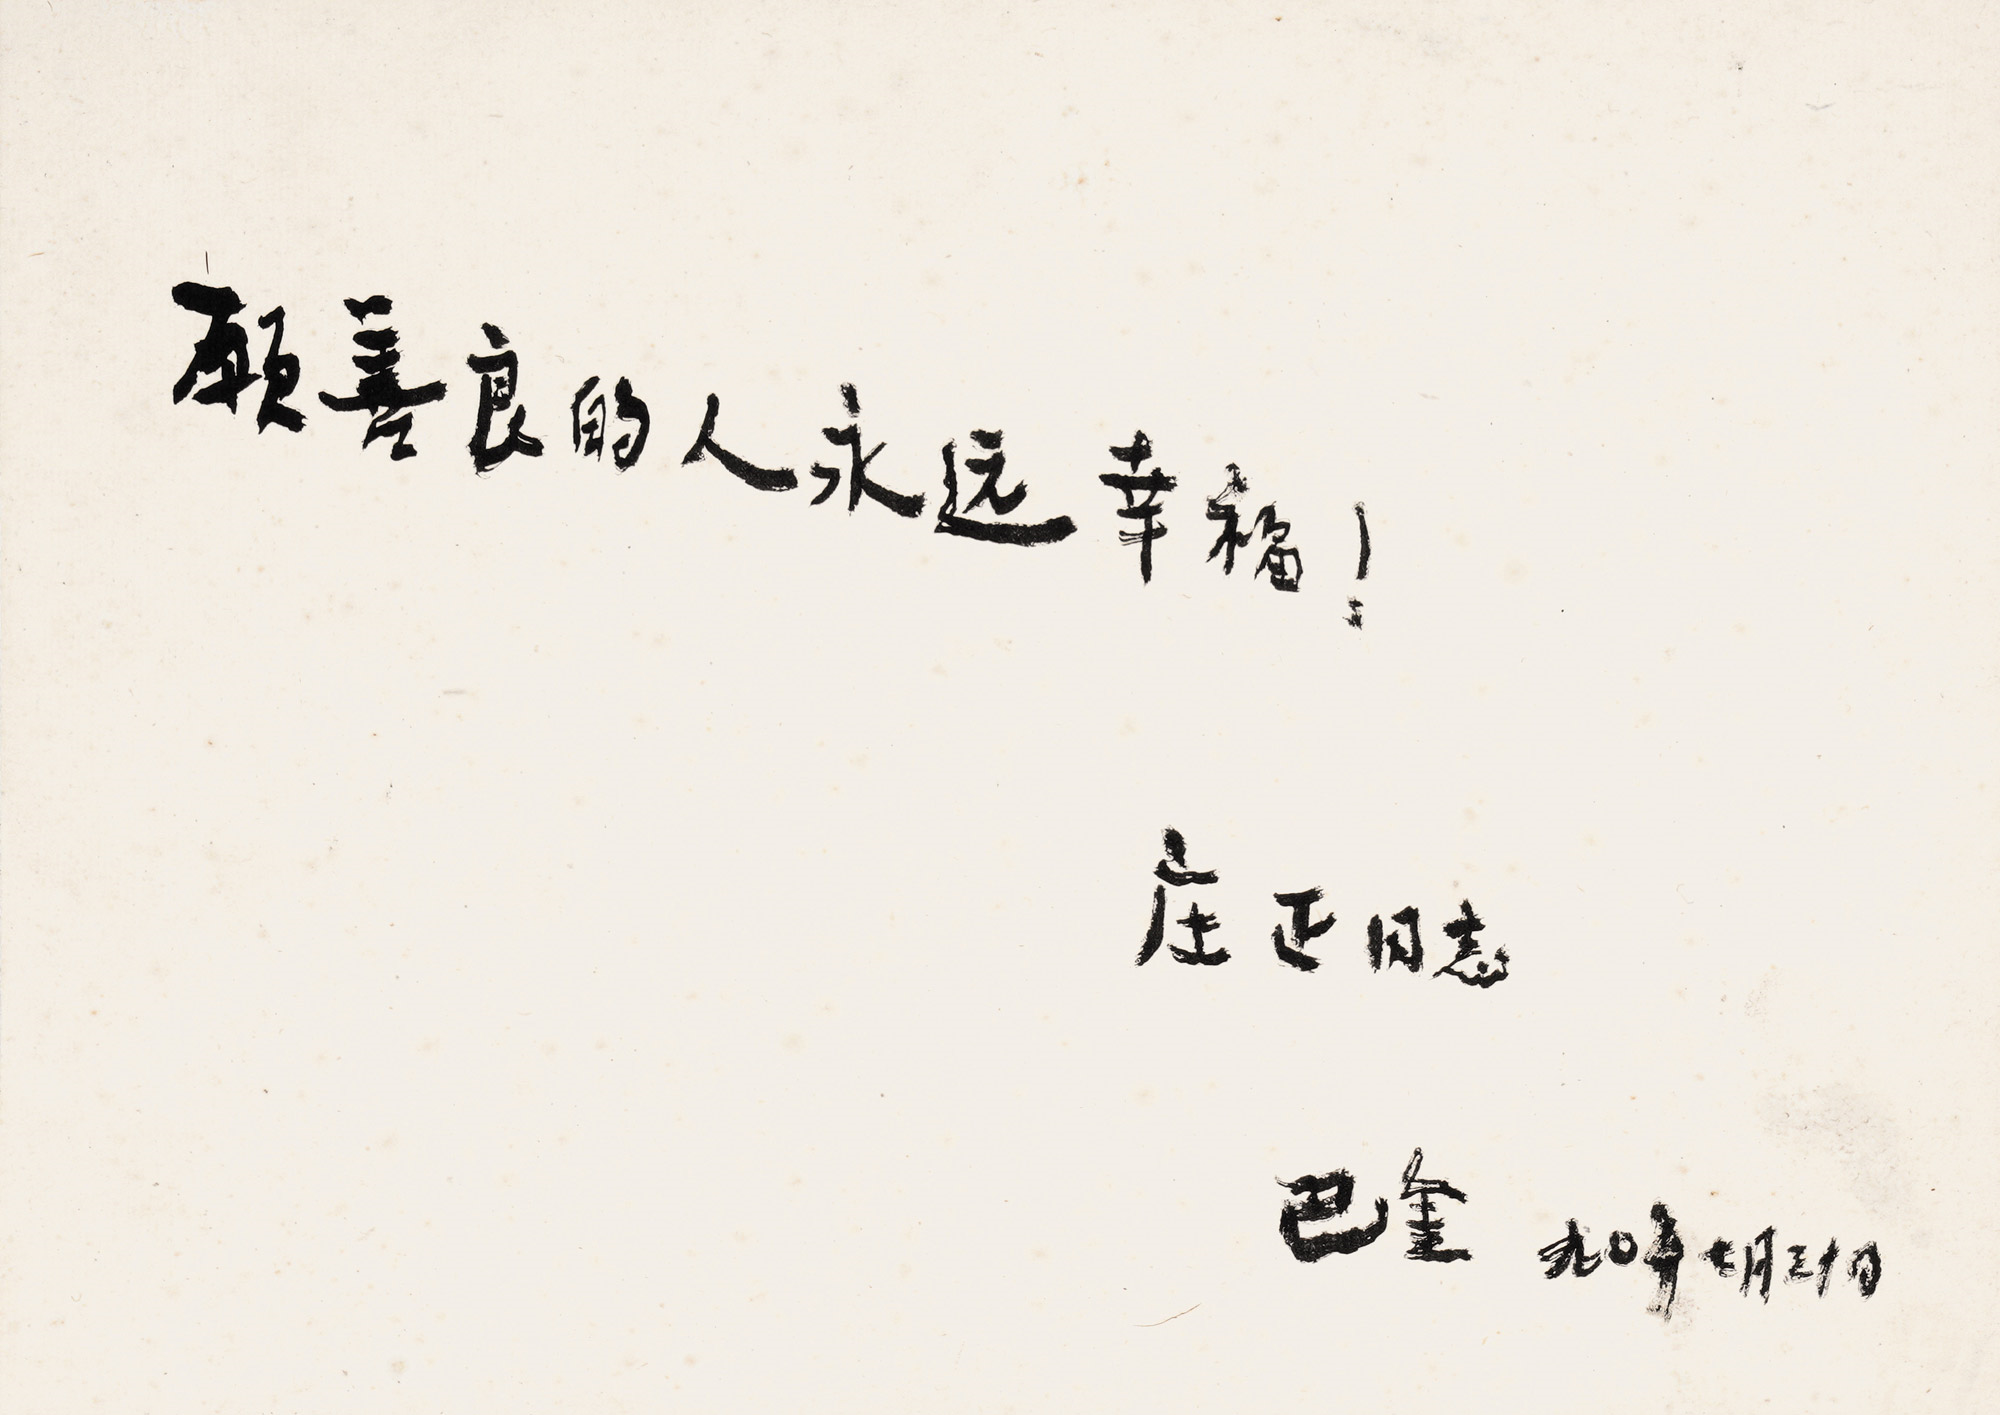 愿善良的人永远幸福！
庄正同志
巴金 九〇年七月三十日